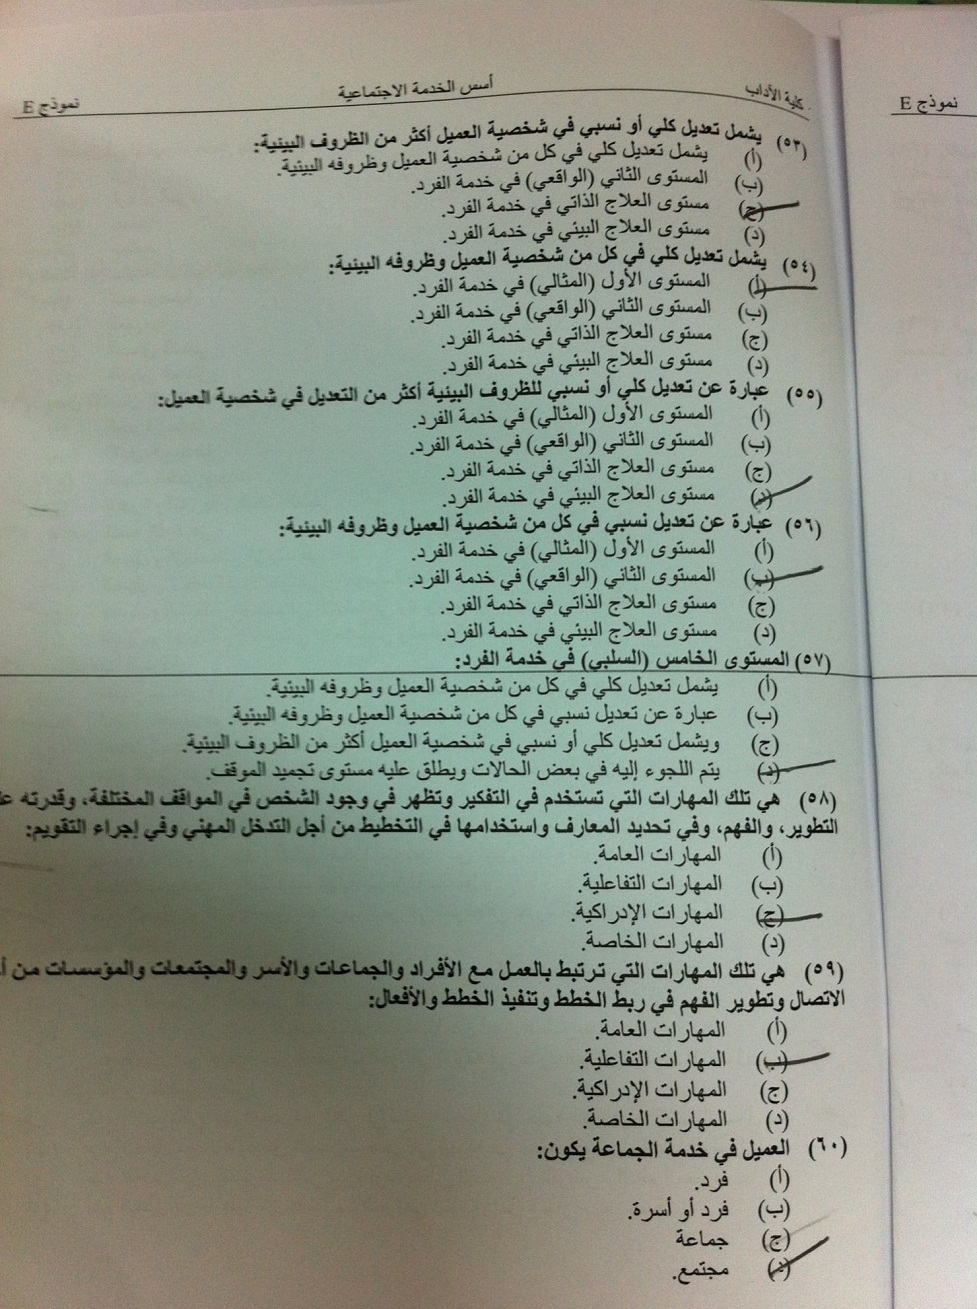 كلية الآداب أسس الخدمة الاجتماعية نموذج E
(٥٣) يشمل تعديل كلي أو نسبي في شخصية العميل أكثر من الظروف البيئية:
(أ) يشمل تعديل كلي في كل من شخصية العميل وظروفه البيئية.
(ب) المستوى الثاني (الواقعي) في خدمة الفرد.
(ج) مستوى العلاج الذاتي في خدمة الفرد.
(د) مستوى العلاج البيئي في خدمة الفرد.
(٥٤) يشمل تعديل كلي في كل من شخصية العميل وظروفه البيئية:
(أ) المستوى الأول (المثالي) في خدمة الفرد.
(ب) المستوى الثاني (الواقعي) في خدمة الفرد.
(ج) مستوى العلاج الذاتي في خدمة الفرد.
(د) مستوى العلاج البيئي في خدمة الفرد.
(٥٥) عبارة عن تعديل كلي أو نسبي للظروف البيئية أكثر من التعديل في شخصية العميل:
(أ) المستوى الأول (المثالي) في خدمة الفرد.
(ب) المستوى الثاني (الواقعي) في خدمة الفرد.
(ج) مستوى العلاج الذاتي في خدمة الفرد.
(د) مستوى العلاج البيئي في خدمة الفرد.
(٥٦) عبارة عن تعديل نسبي في كل من شخصية العميل وظروفه البيئية:
(أ) المستوى الأول (المثالي) في خدمة الفرد.
(ب) المستوى الثاني (الواقعي) في خدمة الفرد.
(ج) مستوى العلاج الذاتي في خدمة الفرد.
(د) مستوى العلاج البيئي في خدمة الفرد.
(٥٧) المستوى الخامس (السلبي) في خدمة الفرد:
(أ) يشمل تعديل كلي في كل من شخصية العميل وظروفه البيئية.
(ب) عبارة عن تعديل نسبي في كل من شخصية العميل وظروفه البيئية.
(ج) ويشمل تعديل كلي أو نسبي في شخصية العميل أكثر من الظروف البيئية.
(د) يتم اللجوء إليه في بعض الحالات ويطلق عليه مستوى تجميد الموقف.
(٥٨) هي تلك المهارات التي تستخدم في التفكير وتظهر في وجود الشخص في المواقف المختلفة، وقدرته
التطوير، والفهم، وفي تحديد المعارف واستخدامها في التخطيط من أجل التدخل المهني وفي إجراء التقويم:
(أ) المهارات العامة.
(ب) المهارات التفاعلية.
(ج) المهارات الإدراكية.
(د) المهارات الخاصة.
(٥٩) هي تلك المهارات التي ترتبط بالعمل مع الأفراد والجماعات والأسر والمجتمعات والمؤسسات من
الاتصال وتطوير الفهم في ربط الخطط وتنفيذ الخطط والأفعال:
(أ) المهارات العامة.
(ب) المهارات التفاعلية.
(ج) المهارات الإدراكية.
(د) المهارات الخاصة.
(٦٠) العميل في خدمة الجماعة يكون:
(أ) فرد.
(ب) فرد أو أسرة.
(ج) جماعة
(د) مجتمع.
نموذج E